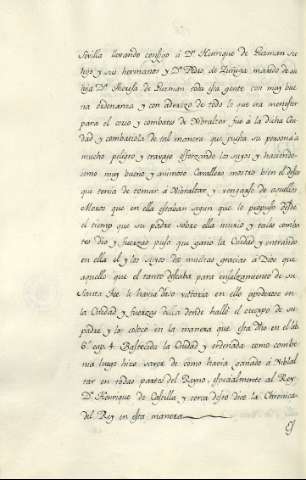 Sivilla llevando consigo á Dn Henrrique de Guzman su
hijo y sus hermanos y Dn Pedro de Zuñiga marido de su
hija Da Theresa de Guzman toda esta gente con muy bue
na hordenanza y con aderezo de todo lo que era menester
para el cerco y combates de Gibraltar fue á la dicha Ciu
dad y combatiola de tal manera que puesta su persona á
mucho peligro y travajo esforzando los suyos y haciendo
como muy bueno y animoso Cavallero mostro bien el deseo
que tenia de tomar á Gibraltar y vengarse de aquellos
Moros que en ella estaban segun que lo propuso desde
el tiempo que su padre sobre ella murio y tales comba
tes dio y fuerzas puso que gano la Ciudad y entrando
en ella el y los suyos dio muchas gracias á Dios que
aquello que el tanto deseaba para ensalzamiento de su
Santa fee le havia dado vitoria en ello apoderose en
la Ciudad y fuerzas della donde hallo el cuerpo de su
padre y lo coloco en la manera que esta dho en el lib
6º cap. 4. Bastecida la Ciudad y ordenada como combe
nia luego hizo saver de como havia ganado á Gibral
tar en todas partes del Reyno, especialmente al Rey
Dn Henrrique de Castilla y cerca desto dice la Chronica
del Rey en esta manera
El